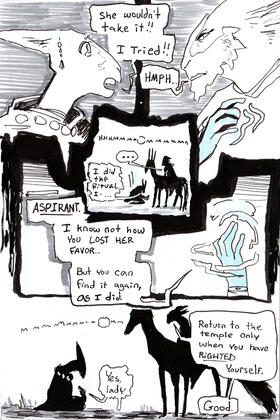 She wouldn't
take it!!
I Tried!!
HMPH.
HHHMMMMMMMMMM
...
I did
the
Ritual.
I-
ASPIRANT.
I know not how
YOU LOST HER
FAVOR..
But you can
find it again,
AS I did.
Return to the
temple only
when you have
RIGHTED
Yourself.
Yes,
lady
Good.